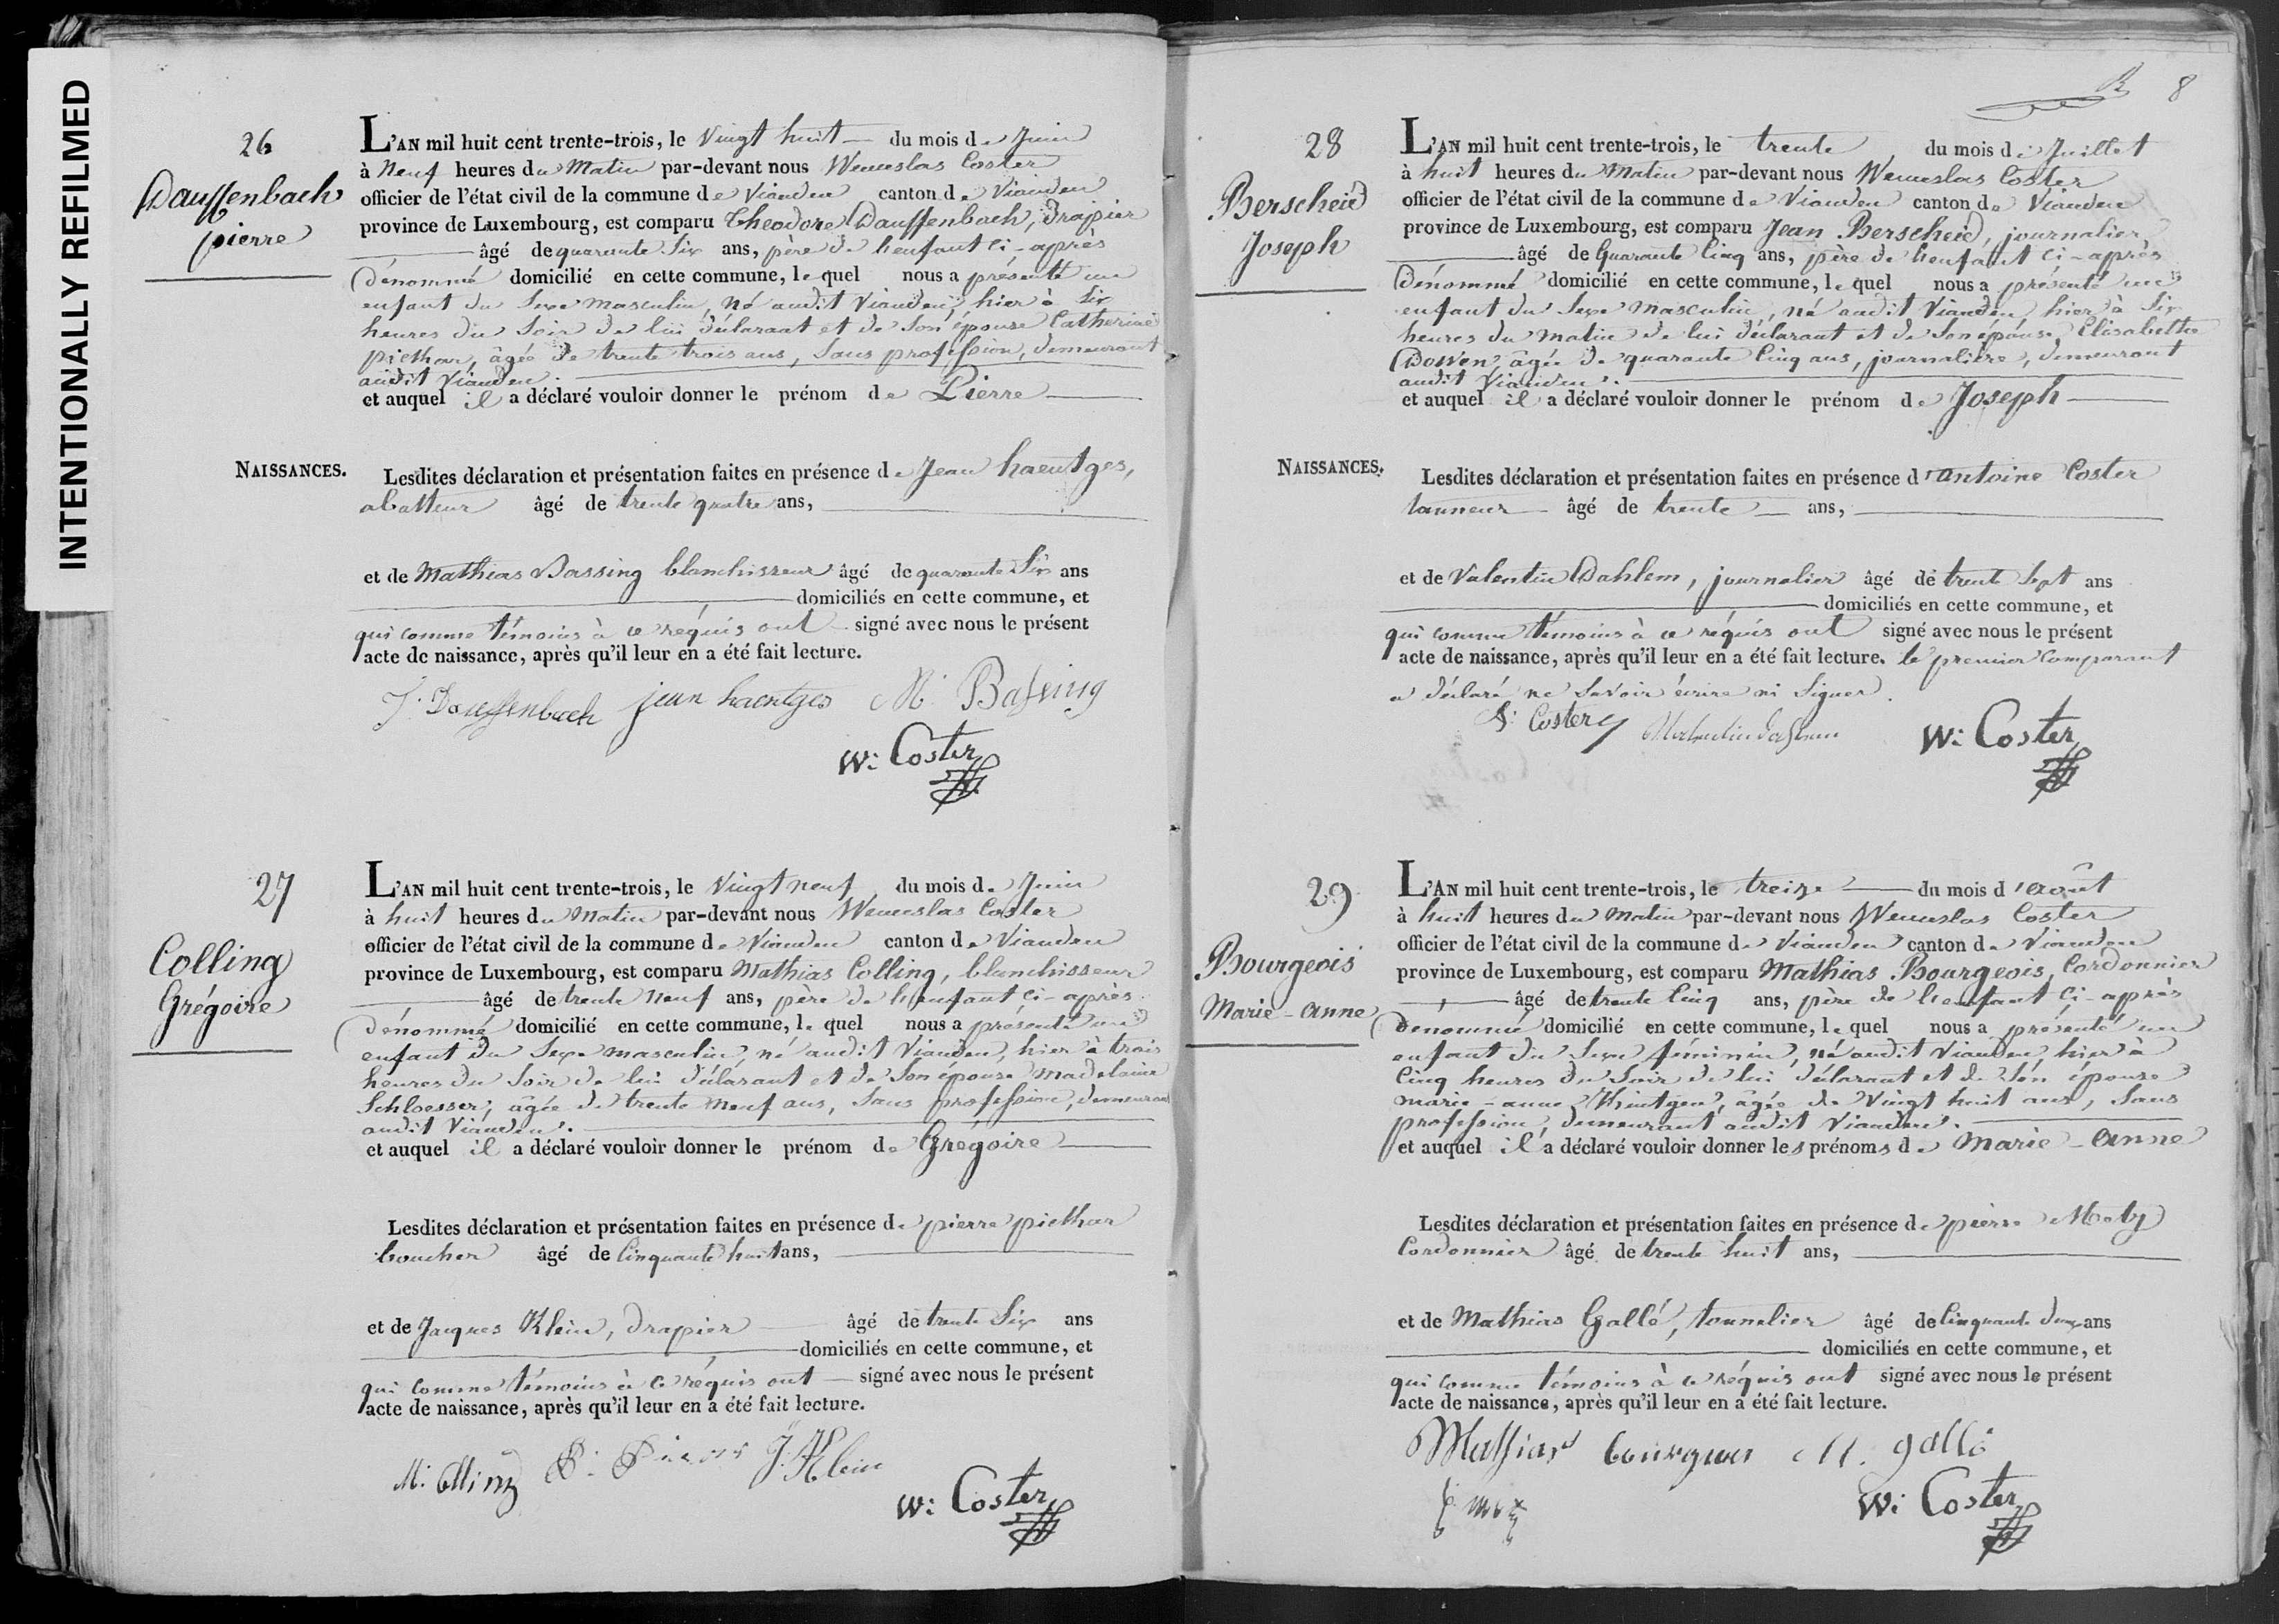 INTENTIONALLY REFILMED
26
Dauffenbach
pierre
L'AN mil huit cent trente-trois, le Vingt huit du mois de Juin
à Neuf heures du Matin par-devant nous Wenceslas Coster
officier de l'état civil de la commune de Vianden canton de Vianden
province de Luxembourg, est comparu Theodore Dauffenbach, Drapier
âgé de quarante Six ans, père de l'enfant ci-après
Dénommé domicilié en cette commune, lequel nous a présenté un
enfant du Sexe masculin, né audit Vianden, hier à Six
heures du Soir de lui déclarant et de Son épouse Catherine
piethar, âgée de trente trois ans, Sans profession, demeurant
audit Vianden.
et auquel il a déclaré vouloir donner le prénom de Pierre
NAISSANCES.
Lesdites déclaration et présentation faites en présence de Jean haentges,
abatteur âgé de trente quatre ans,
et de Mathias Bassing blanchisseur âgé de quarante Six ans
domiciliés en cette commune, et
qui comme témoins à ce réquis ont signé avec nous le présent
acte de naissance, après qu'il leur en a été fait lecture.
T. Dauffenbach jean haentges M. Bassing
W: Coster
27
Colling
Grégoire
L'AN mil huit cent trente-trois, le Vingt neuf du mois de Juin
à huit heures du Matin par-devant nous Wenceslas Coster
officier de l'état civil de la commune de Vianden canton de Vianden
province de Luxembourg, est comparu Mathias Colling, blanchisseur
âgé de trente Neuf ans, père de l'enfant ci-après
Dénommé domicilié en cette commune, lequel nous a présenté un
enfant du Sexe masculin, né audit Vianden, hier à trois
heures du Soir de lui déclarant et de Son épouse Madelaine
Schloesser, âgée de trente Neuf ans, Sans profession, demeurant
audit Vianden.
et auquel il a déclaré vouloir donner le prénom de Grégoire
Lesdites déclaration et présentation faites en présence de pierre piethar
boucher âgé de Cinquante huit ans,
et de Jacques Klein, Drapier âgé de trente Six ans
domiciliés en cette commune, et
qui comme témoins à ce réquis ont signé avec nous le présent
acte de naissance, après qu'il leur en a été fait lecture.
J. Klein
W: Coster
8
28
Berscheid
Joseph
L'AN mil huit cent trente-trois, le trente du mois de Juillet
à huit heures du Matin par-devant nous Wenceslas Coster
officier de l'état civil de la commune de Vianden canton de Vianden
province de Luxembourg, est comparu Jean Berscheid, journalier
âgé de Quarante Cinq ans, père de l'enfant ci-après
Dénommé domicilié en cette commune, lequel nous a présenté un
enfant du Sexe masculin, né audit Vianden hier à Six
heures du matin de lui déclarant et de Son épouse Elisabethe
Bowen, âgée de quarante Cinq ans, journalière, demeurant
audit Vianden.
et auquel il a déclaré vouloir donner le prénom de Joseph
NAISSANCES.
Lesdites déclaration et présentation faites en présence d'Antoine Coster
tanneur âgé de trente ans,
et de Valentin Dahlem, journalier âgé de trente Sept ans
domiciliés en cette commune, et
qui comme témoins à ce réquis ont signé avec nous le présent
acte de naissance, après qu'il leur en a été fait lecture. le premier Comparant
a déclaré ne Savoir écrire ni Signer.
Coster
W: Coster
29
Bourgeois
Marie-Anne
L'AN mil huit cent trente-trois, le treize du mois d'Août
à huit heures du Matin par-devant nous Wenceslas Coster
officier de l'état civil de la commune de Vianden canton de Vianden
province de Luxembourg, est comparu Mathias Bourgeois, Cordonnier
âgé de trente Cinq ans, père de l'enfant ci-après
Dénommé domicilié en cette commune, lequel nous a présenté un
enfant du Sexe féminin, né audit Vianden, hier à
Cinq heures du Soir de lui déclarant et de Son épouse
marie-anne Kintgen, âgée de Vingt huit ans, Sans
profession, demeurant audit Vianden.
et auquel il a déclaré vouloir donner les prénoms de Marie-Anne
Lesdites déclaration et présentation faites en présence de pierre
Cordonnier âgé de trente huit ans,
et de Mathias Gallé, tonnelier âgé de Cinquante Deux ans
domiciliés en cette commune, et
qui comme témoins à ce réquis ont signé avec nous le présent
acte de naissance, après qu'il leur en a été fait lecture.
Mathias M. gallé
W: Coster